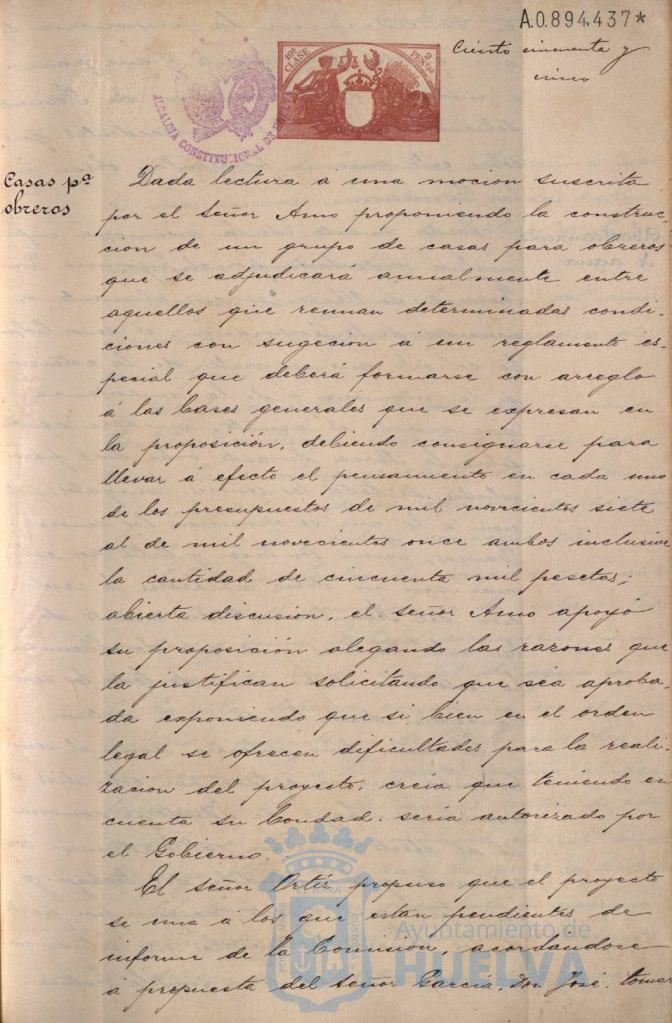 A.0.894.437*
Ciento cincuenta y
cinco
10ª CLASE
2 PESETAS
ALCALDIA CONSTITUCIONAL DE
Casas pª
obreros
Dada lectura á una mocion suscrita
por el Señor Amo proponiendo la construc-
cion de un grupo de casas para obreros
que se adjudicará anualmente entre
aquellos que reunan determinadas condi-
ciones con sugecion á un reglamento es-
pecial que deberá formarse con arreglo
á las bases generales que se expresan en
la proposición, debiendo consignarse para
llevar á efecto el pensamiento en cada uno
de los presupuestos de mil novecientos siete
al de mil novecientos once ambos inclusive
la cantidad de cincuenta mil pesetas;
abierta discusion, el señor Amo apoyó
su proposición alegando las razones que
la justifican solicitando que sea aproba-
da exponiendo que si bien en el orden
legal se ofrecen dificultades para la reali-
zacion del proyecto, creia que teniendo en
cuenta su bondad, seria autorizado por
el Gobierno.
El señor Ortiz propuso que el proyecto
se una á los que estan pendientes de
informe de la Comision, acordandose
á propuesta del Señor Garcia, Don José, tomar
Ayuntamiento de
HUELVA